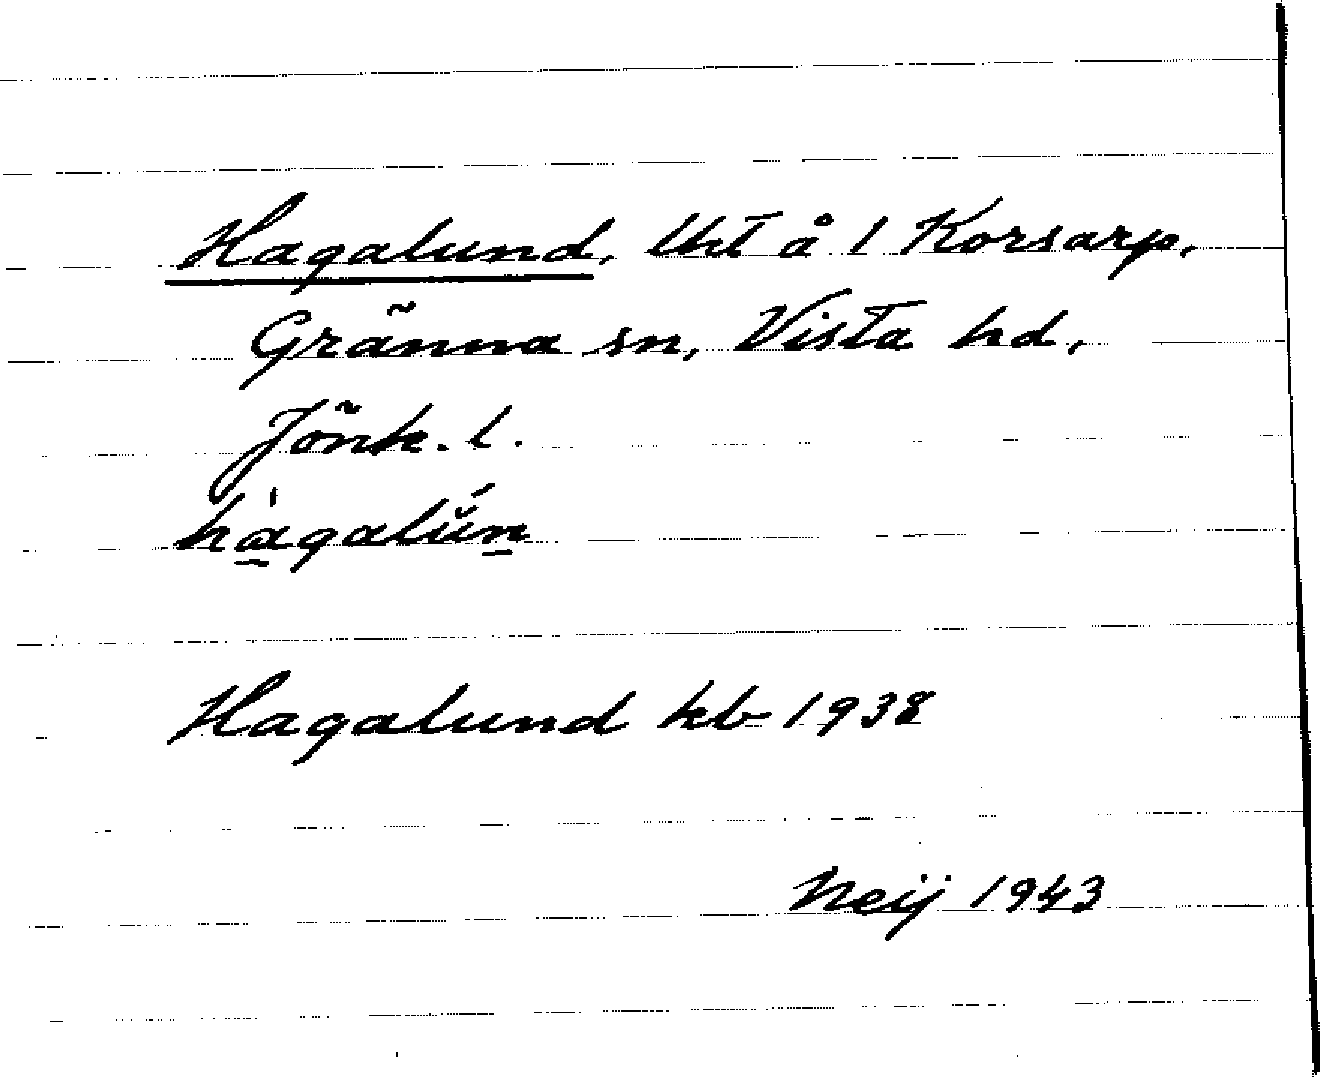 Hagalund, lht å 1 Korsarp,
Gränna sn, Vista hd,
Jönk. l.
hàgalŭ́n
Hagalund kb 1938
Neij 1943